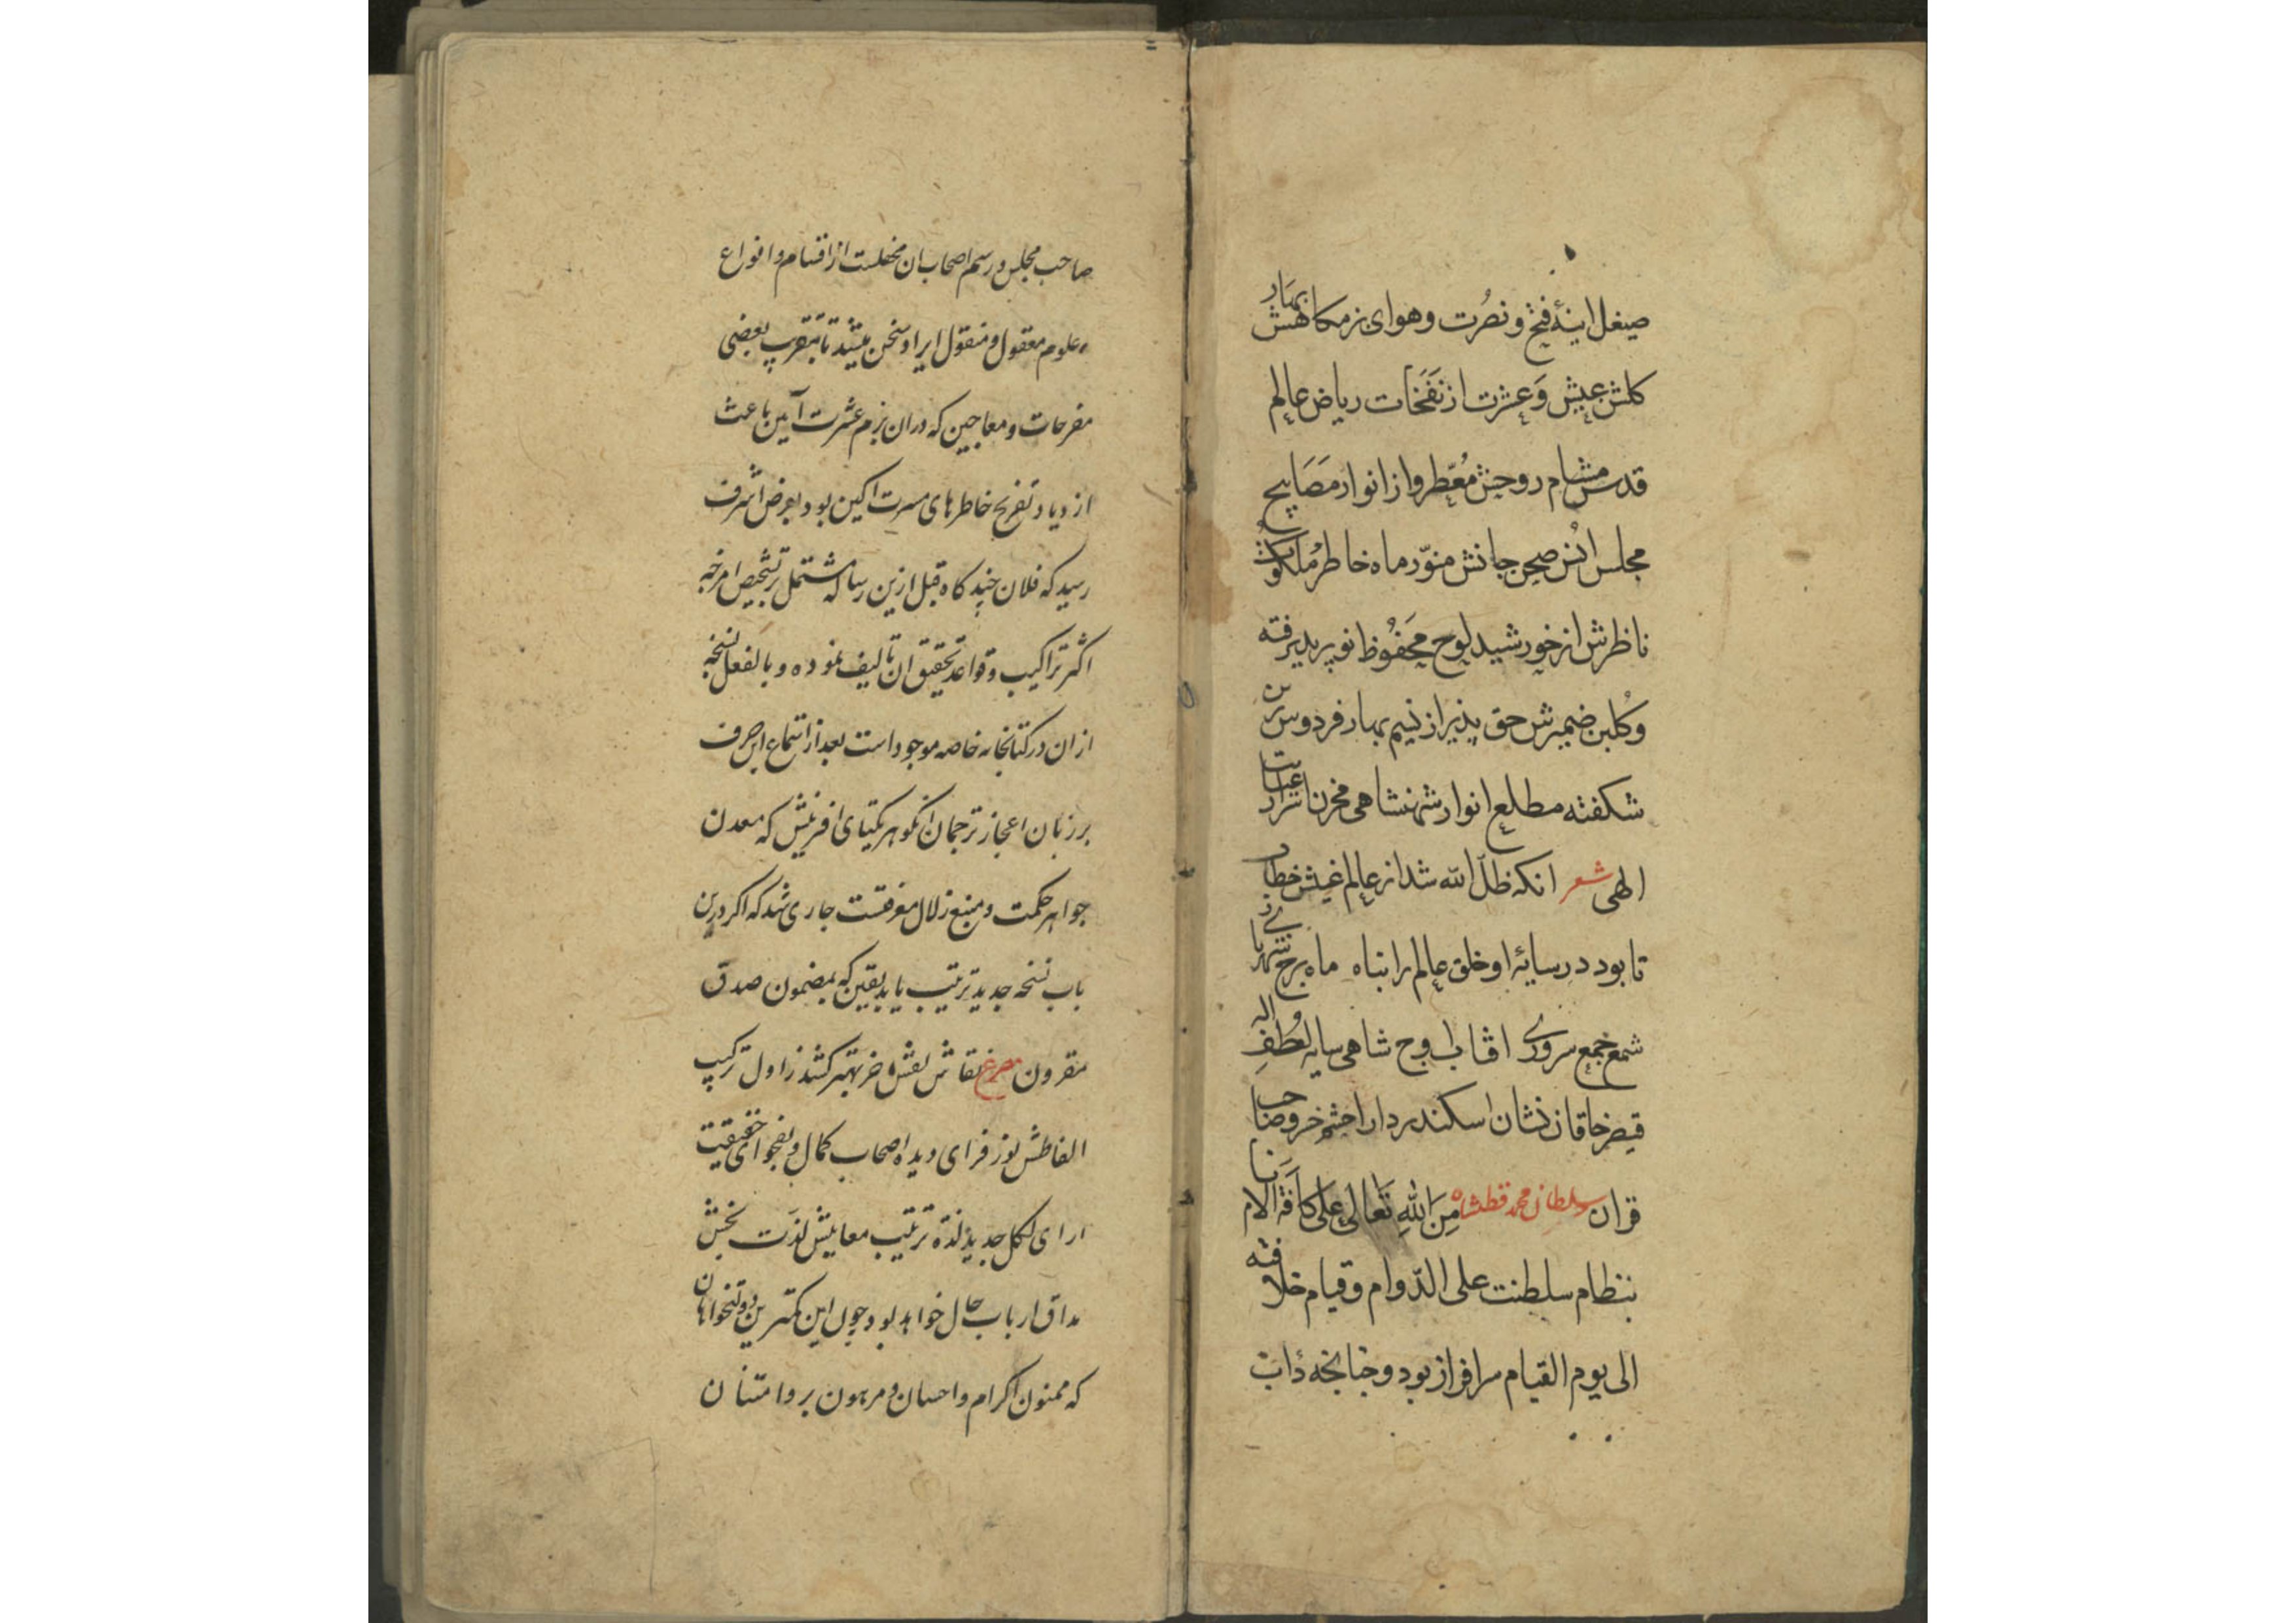 صیقل اینهٔ فتح و نصُرت و هوای بزمکاهش بهار
کلشن عیش وَ عشرت از نَفَحَات ریاض عالم
قدس مشام روحش مُعّطر و از انوار مَصَابیح
مجلس انُس صحن جانش منوّر ماه خاطر مُلکوت
ناظرش از خورشید لوح مَحفُوظ نور پذیرفته
و کُلبن ضمیرش حق پذیر از نسیم بهار فردوس برین
شکفته مطلع انوار شهنشاهی مخزن اسرار عنایت
الهی شعر انکه ظلّ الله شد از عالم غیبش خطاب
تا بود در سایهٔ او خلق عالم را پناه ماه برج شهریاری
شمع جمع سروری افتاب اوج شاهی سایه لُطفِ اله
قیصر خاقان نشان اسکندر دارا حشم خسرو صاحب
قران سلطان محمد قطبشاه مِنَ اللهِ تَعَالیٰ عَلی کاَفّة الانام
بنظام سلطنت علی الدّوام و قیام خلافته
الی یوم القیام سرافراز بود و چنانچه داب
صاحب مجلس و رسم اصحاب ان محفلست از اقسام و انواع
علوم معقول و منقول ایراد سخن میشد تا بتقریب بعضی
مفرحات و معاجین که دران بزم عشرت آیین باعث
ازدیاد تفریح خاطرهای مسرت اکین بود بعرض اشرف
رسید که فلان چند کاه قبل ازین رساله مشتمل بر تشخیص امزجه
اکثر تراکیب و قواعد تحقیق ان تالیف نموده و بالفعل نسخه
ازان در کتابخانه خاصه موجود است بعد از استماع این حرف
بر زبان اعجاز ترجمان انکوهر یکتای افرینش که معدن
جواهر حکمت و منبع زلال معرفتست جاری شد که اکر درین
باب نسخه جدید ترتیب یابد یقین که بمضمون صدق
مقرون مصرع نقاش نقش اخر بهتر کشد ز اول ترکیب
الفاظش نورفزای دیده اصحاب کمال و بفحوای حقیقت
ارای لکل جدید لذة ترتیب معانیش لذّت بخش
مذاق ارباب حال خواهد بود چون این کمترین دولتخواهان
که ممنون اکرام و احسان و مرهون بر و امتنان